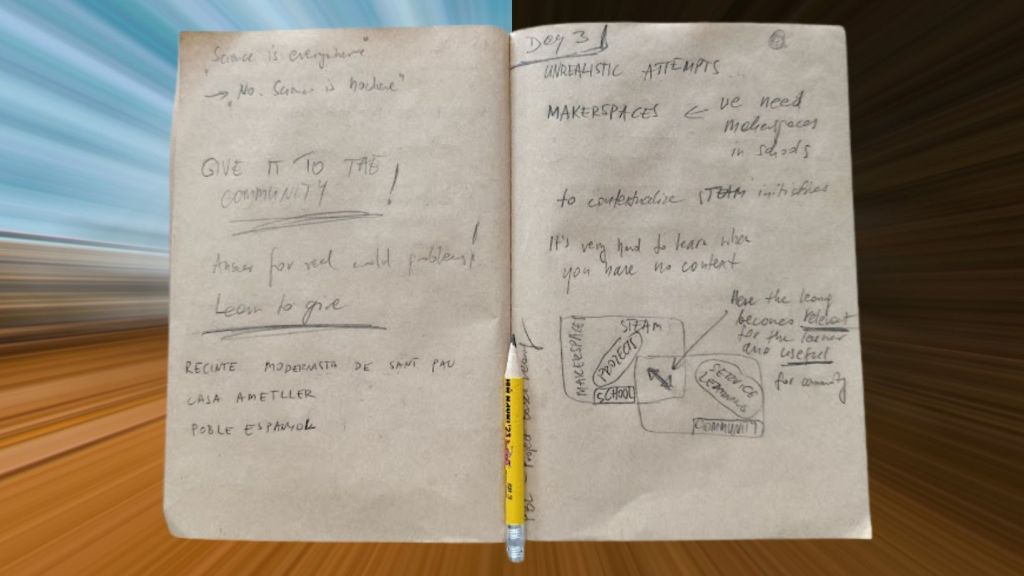 "Science is everywhere"
→ "No. Science is nowhere"
GIVE IT TO THE
COMMUNITY!
Answer for real world problems!
Learn to give
RECINTE MODERNISTA DE SANT PAU
CASA AMETLLER
POBLE ESPANYOL
Day 3
UNREALISTIC ATTEMPTS
MAKERSPACES ← we need
makerspaces
in schools
to contextualise STEAM initiatives
It's very hard to learn when
you have no context
Here the learning
becomes relevant
for the learner
and useful
for community
MAKERSPACES
STEAM
PROJECTS
SCHOOL
SERVICE
LEARNING
COMMUNITY
PBL - Project